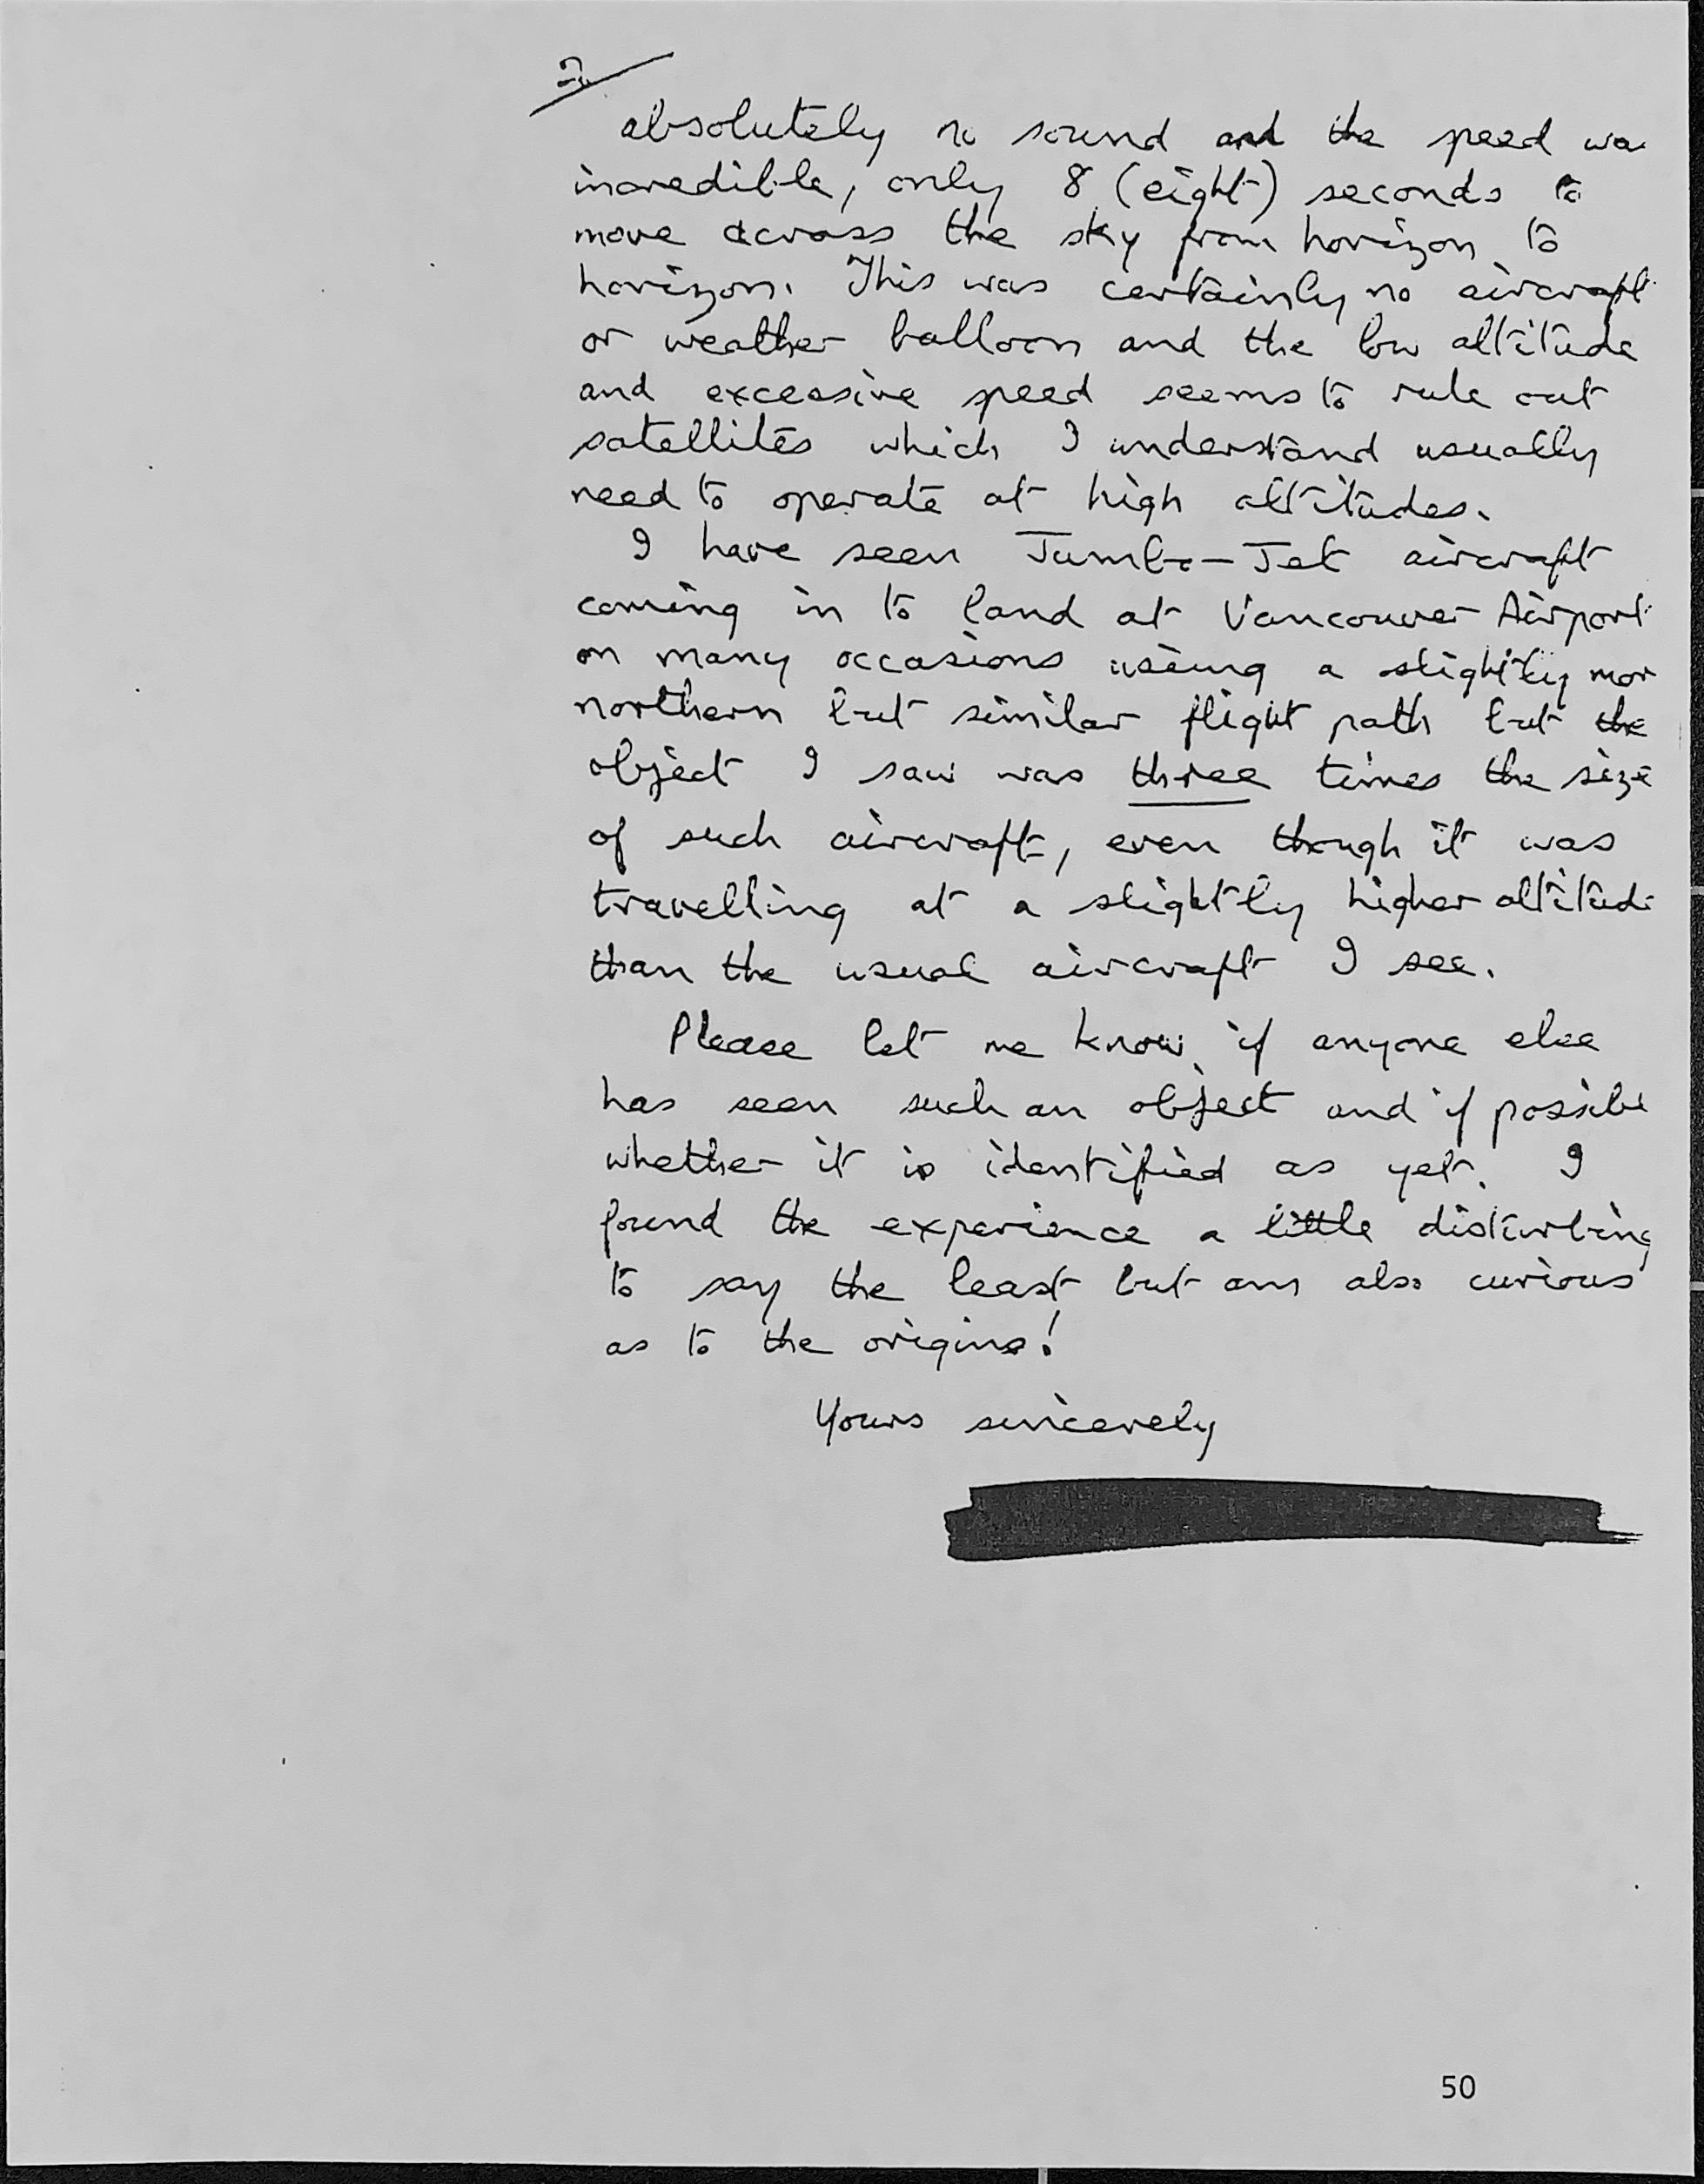 2/
absolutely no sound and the speed wa
incredible, only 8 (eight) seconds to
move across the sky from horizon to
horizon. This was certainly no aircraft
or weather balloon and the low altitude
and excessive speed seems to rule out
satellites which I understand usually
need to operate at high altitudes.
I have seen Jumbo-Jet aircraft
coming in to land at Vancouver Airport
on many occasions useing a slightly mor
northern but similar flight path but the
object I saw was three times the size
of such aircraft, even though it was
travelling at a slightly higher altitude
than the usual aircraft I see.
Please let me know if anyone else
has seen such an object and if possible
whether it is identified as yet. I
found the experience a little disturbing
to say the least but am also curious
as to the origins!
Yours sincerely
50